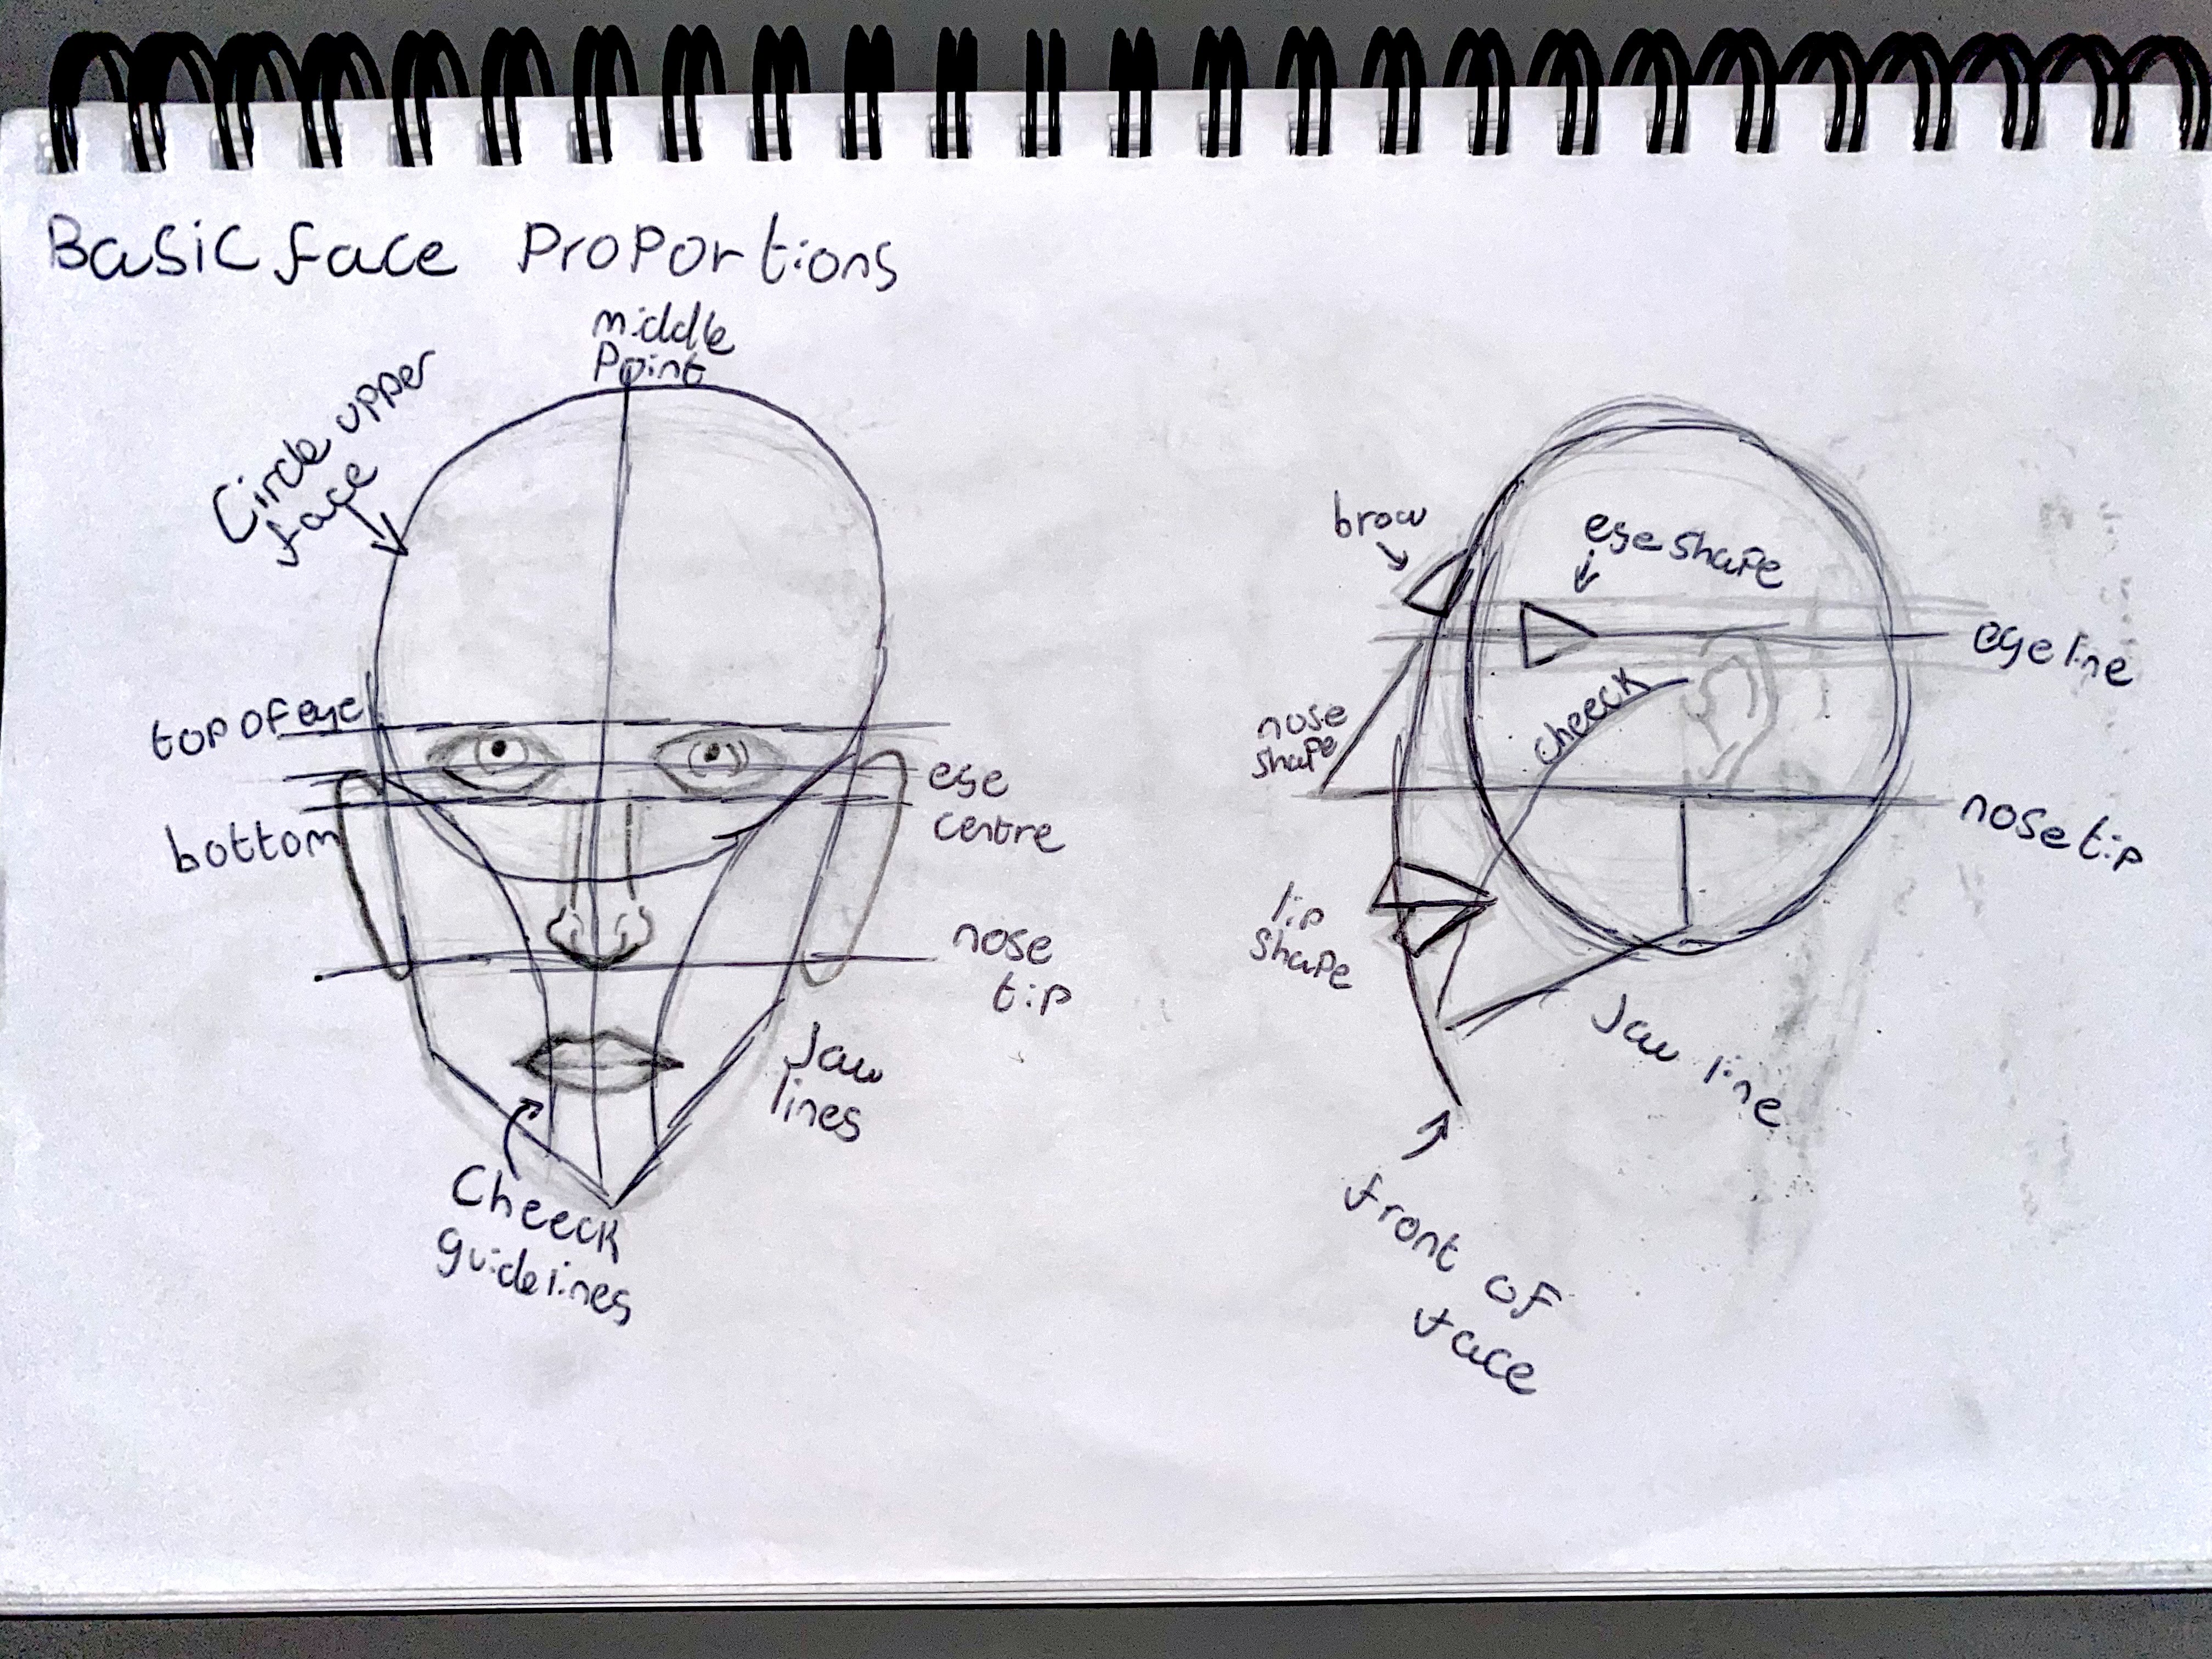 Basic face Proportions
middle
Point
Circle upper
face
top of eye
bottom
eye
centre
nose
tip
Jaw
lines
Cheeck
guidelines
brow
eye shape
eye line
cheeck
nose
shape
nose tip
lip
shape
Jaw line
front of
face